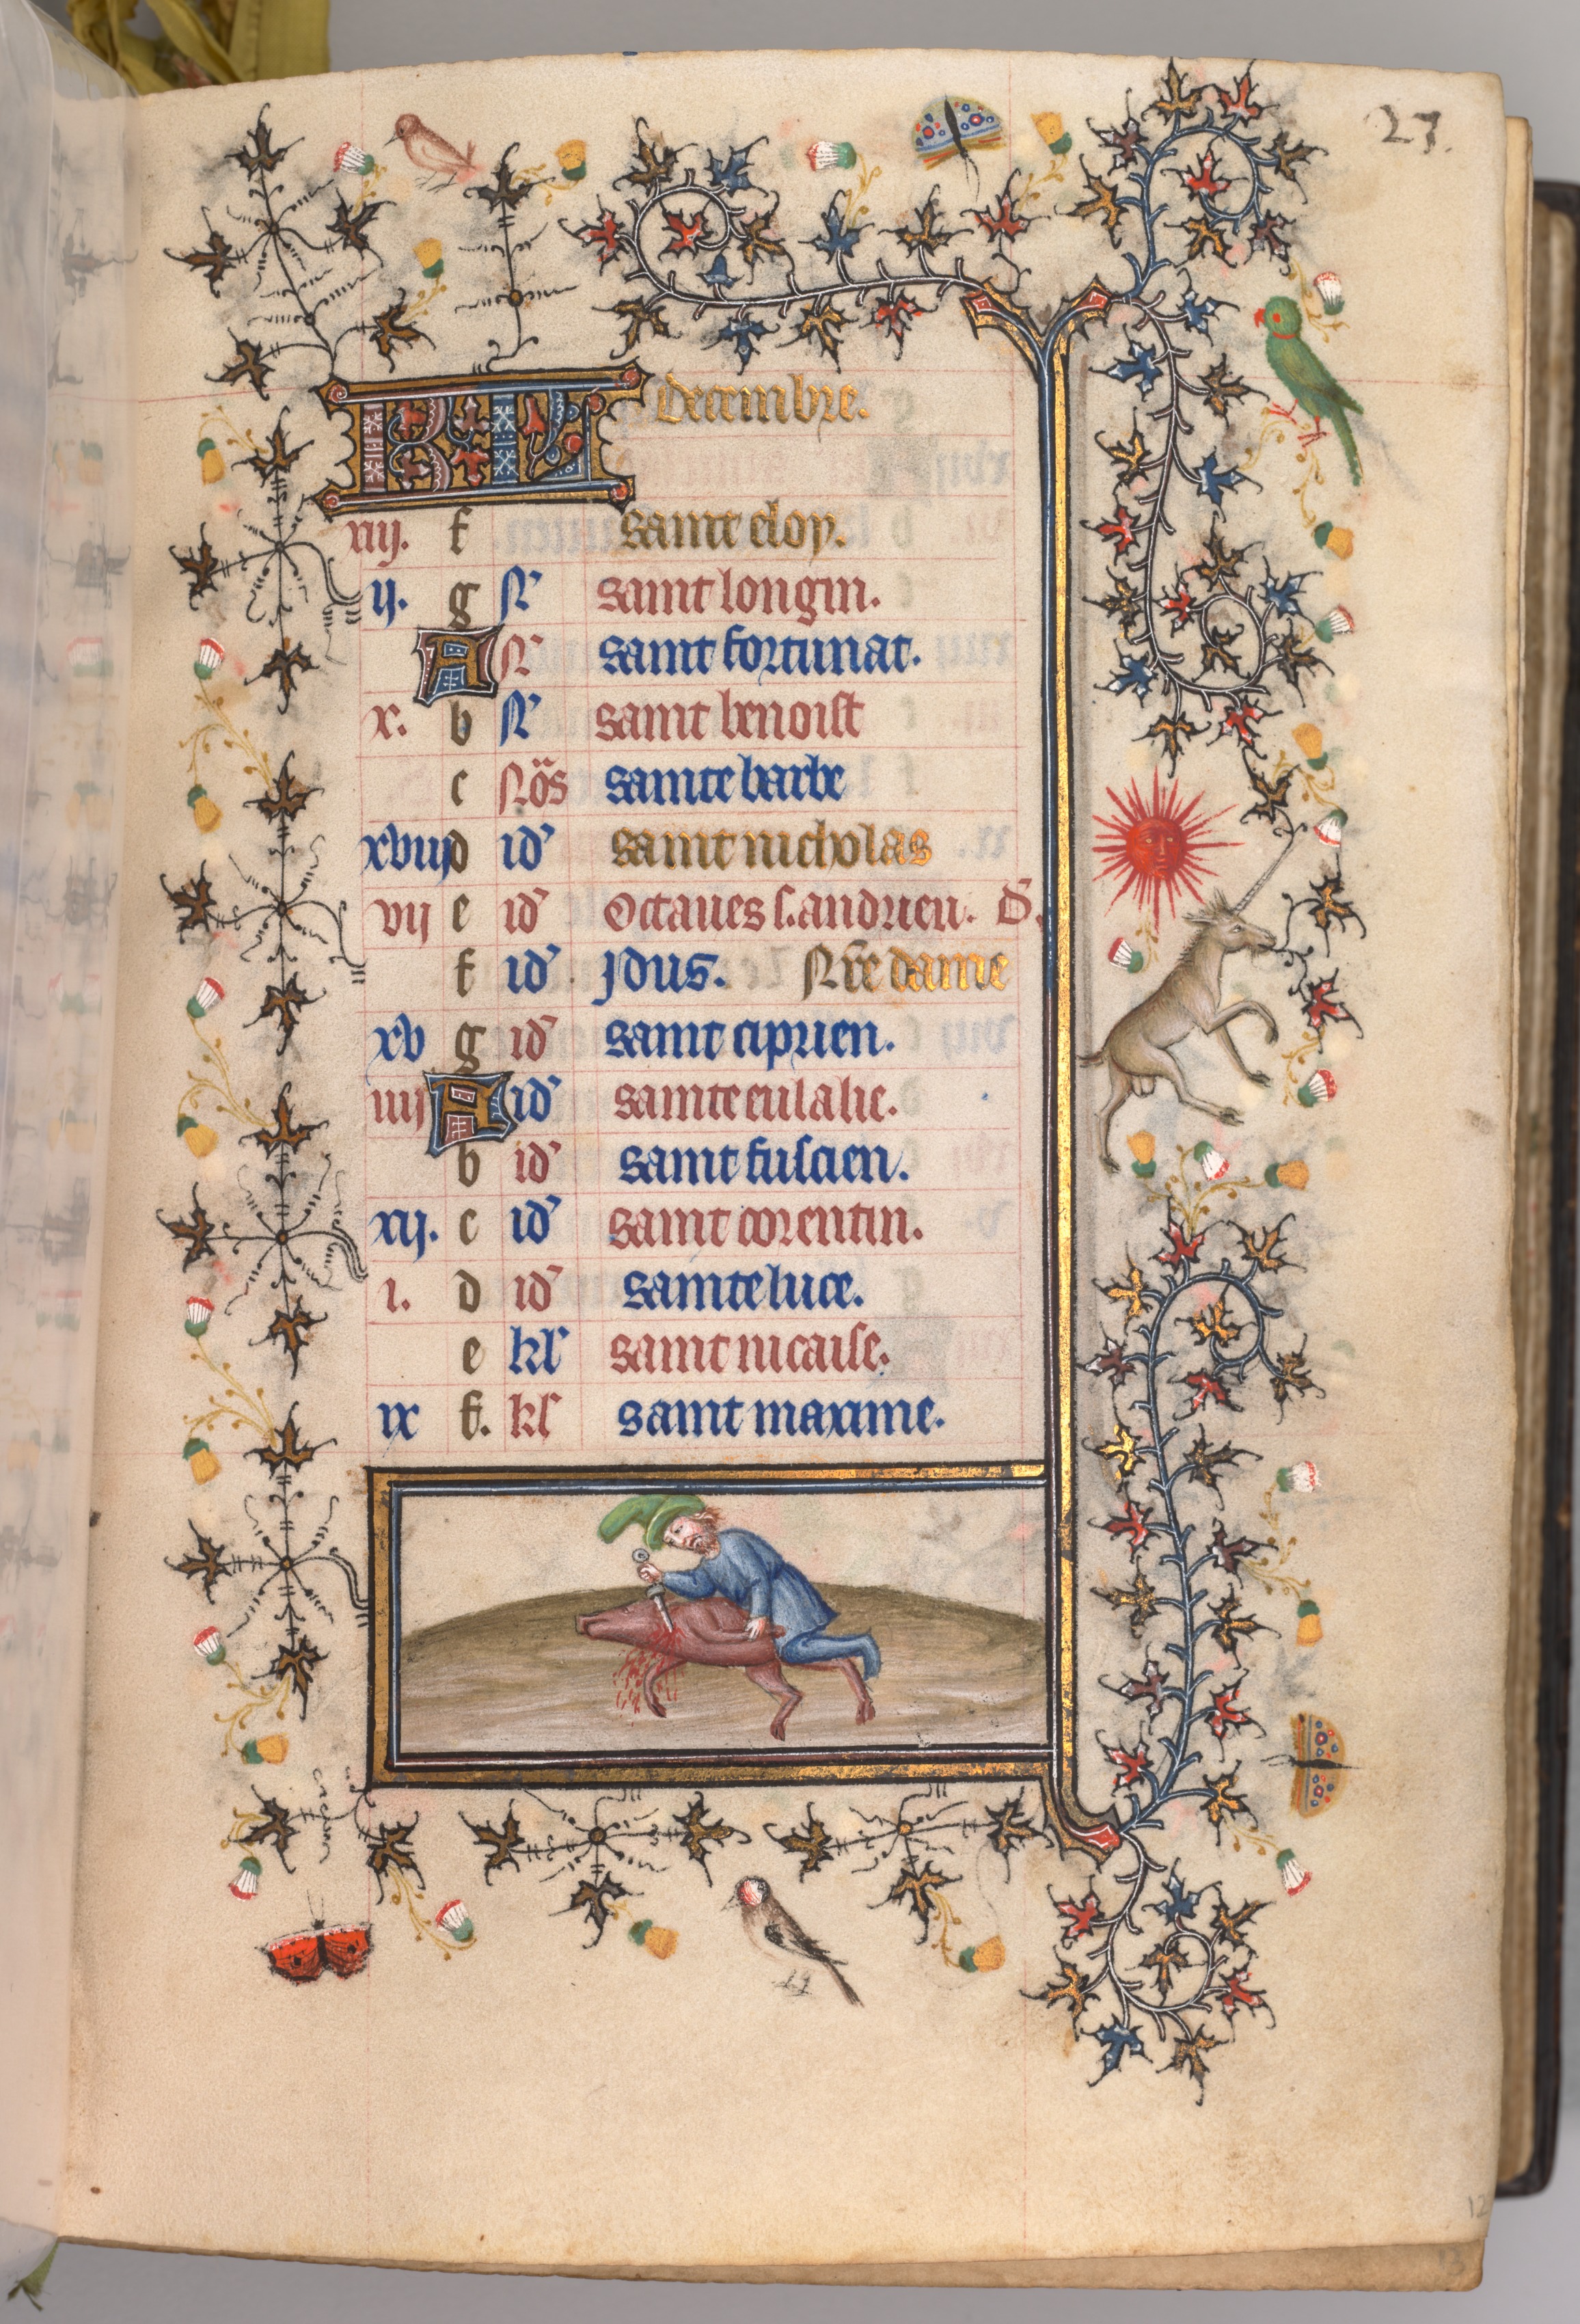 27.
KL decembre.
xiij. f saint eloy.
ij. g N' saint longin.
A N' saint fortunat.
x. b N' saint benoist
c Nōs sainte barbe
xviij d id' saint nicholas
vij e id' Octaues s. andrieu. d.
f id' Jdus. Nr̄e dame
xv g id' saint ciprien.
iiij A id' sainte eulalie.
b id' saint fuscien.
xij. c id' saint corentin.
i. d id' sainte luce.
e kl' saint nicaise.
ix f. kl' saint maxime.
12